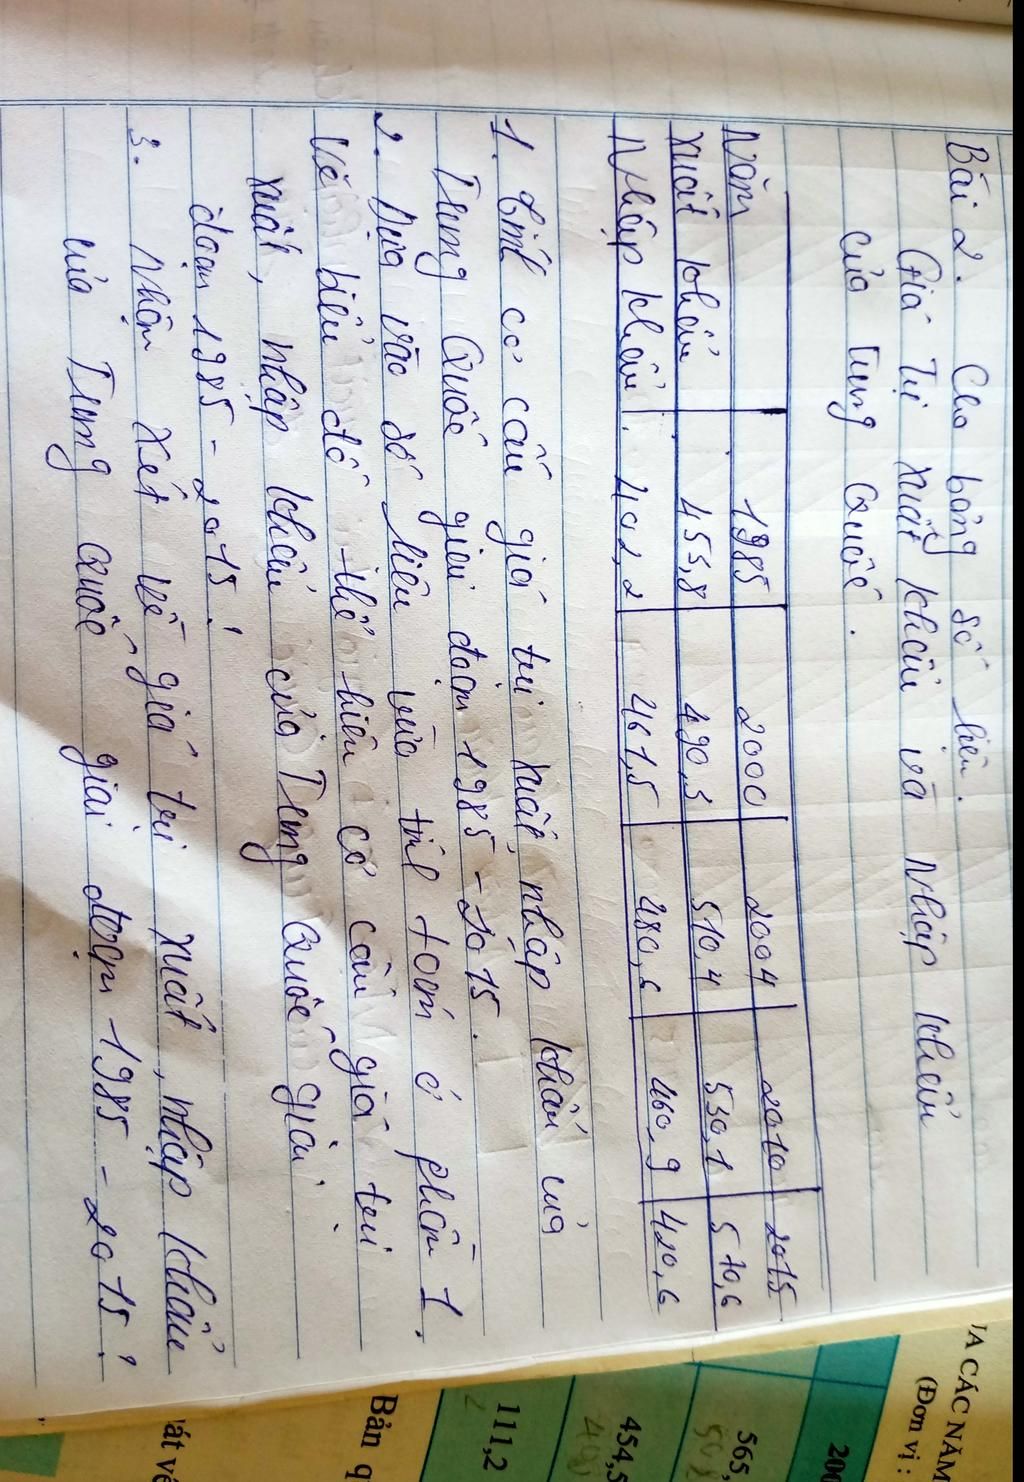 Bài 2. Cho bảng số liệu.
Giá Trị xuất khẩu và Nhập khẩu
của Trung Quốc.
Năm 1985 2000 2004 2010 2015
Xuất khẩu 455,8 490,5 510,4 530,1 570,6
Nhập khẩu 402,2 461,5 480,6 460,9 420,6
1. Tính cơ cấu giá trị xuất, nhập khẩu của
Trung Quốc giai đoạn 1985 - 2015.
2. Dựa vào số liệu vừa tính toán ở phần 1.
Vẽ biểu đồ thể hiện cơ cấu giá trị
xuất, nhập khẩu của Trung Quốc giai
đoạn 1985 - 2015!
3. Nhận xét về giá trị xuất, nhập khẩu
của Trung Quốc giai đoạn 1985 - 2015!
A CÁC NĂM
(Đơn vị :
200
565,
454,5
111,2
Bản q